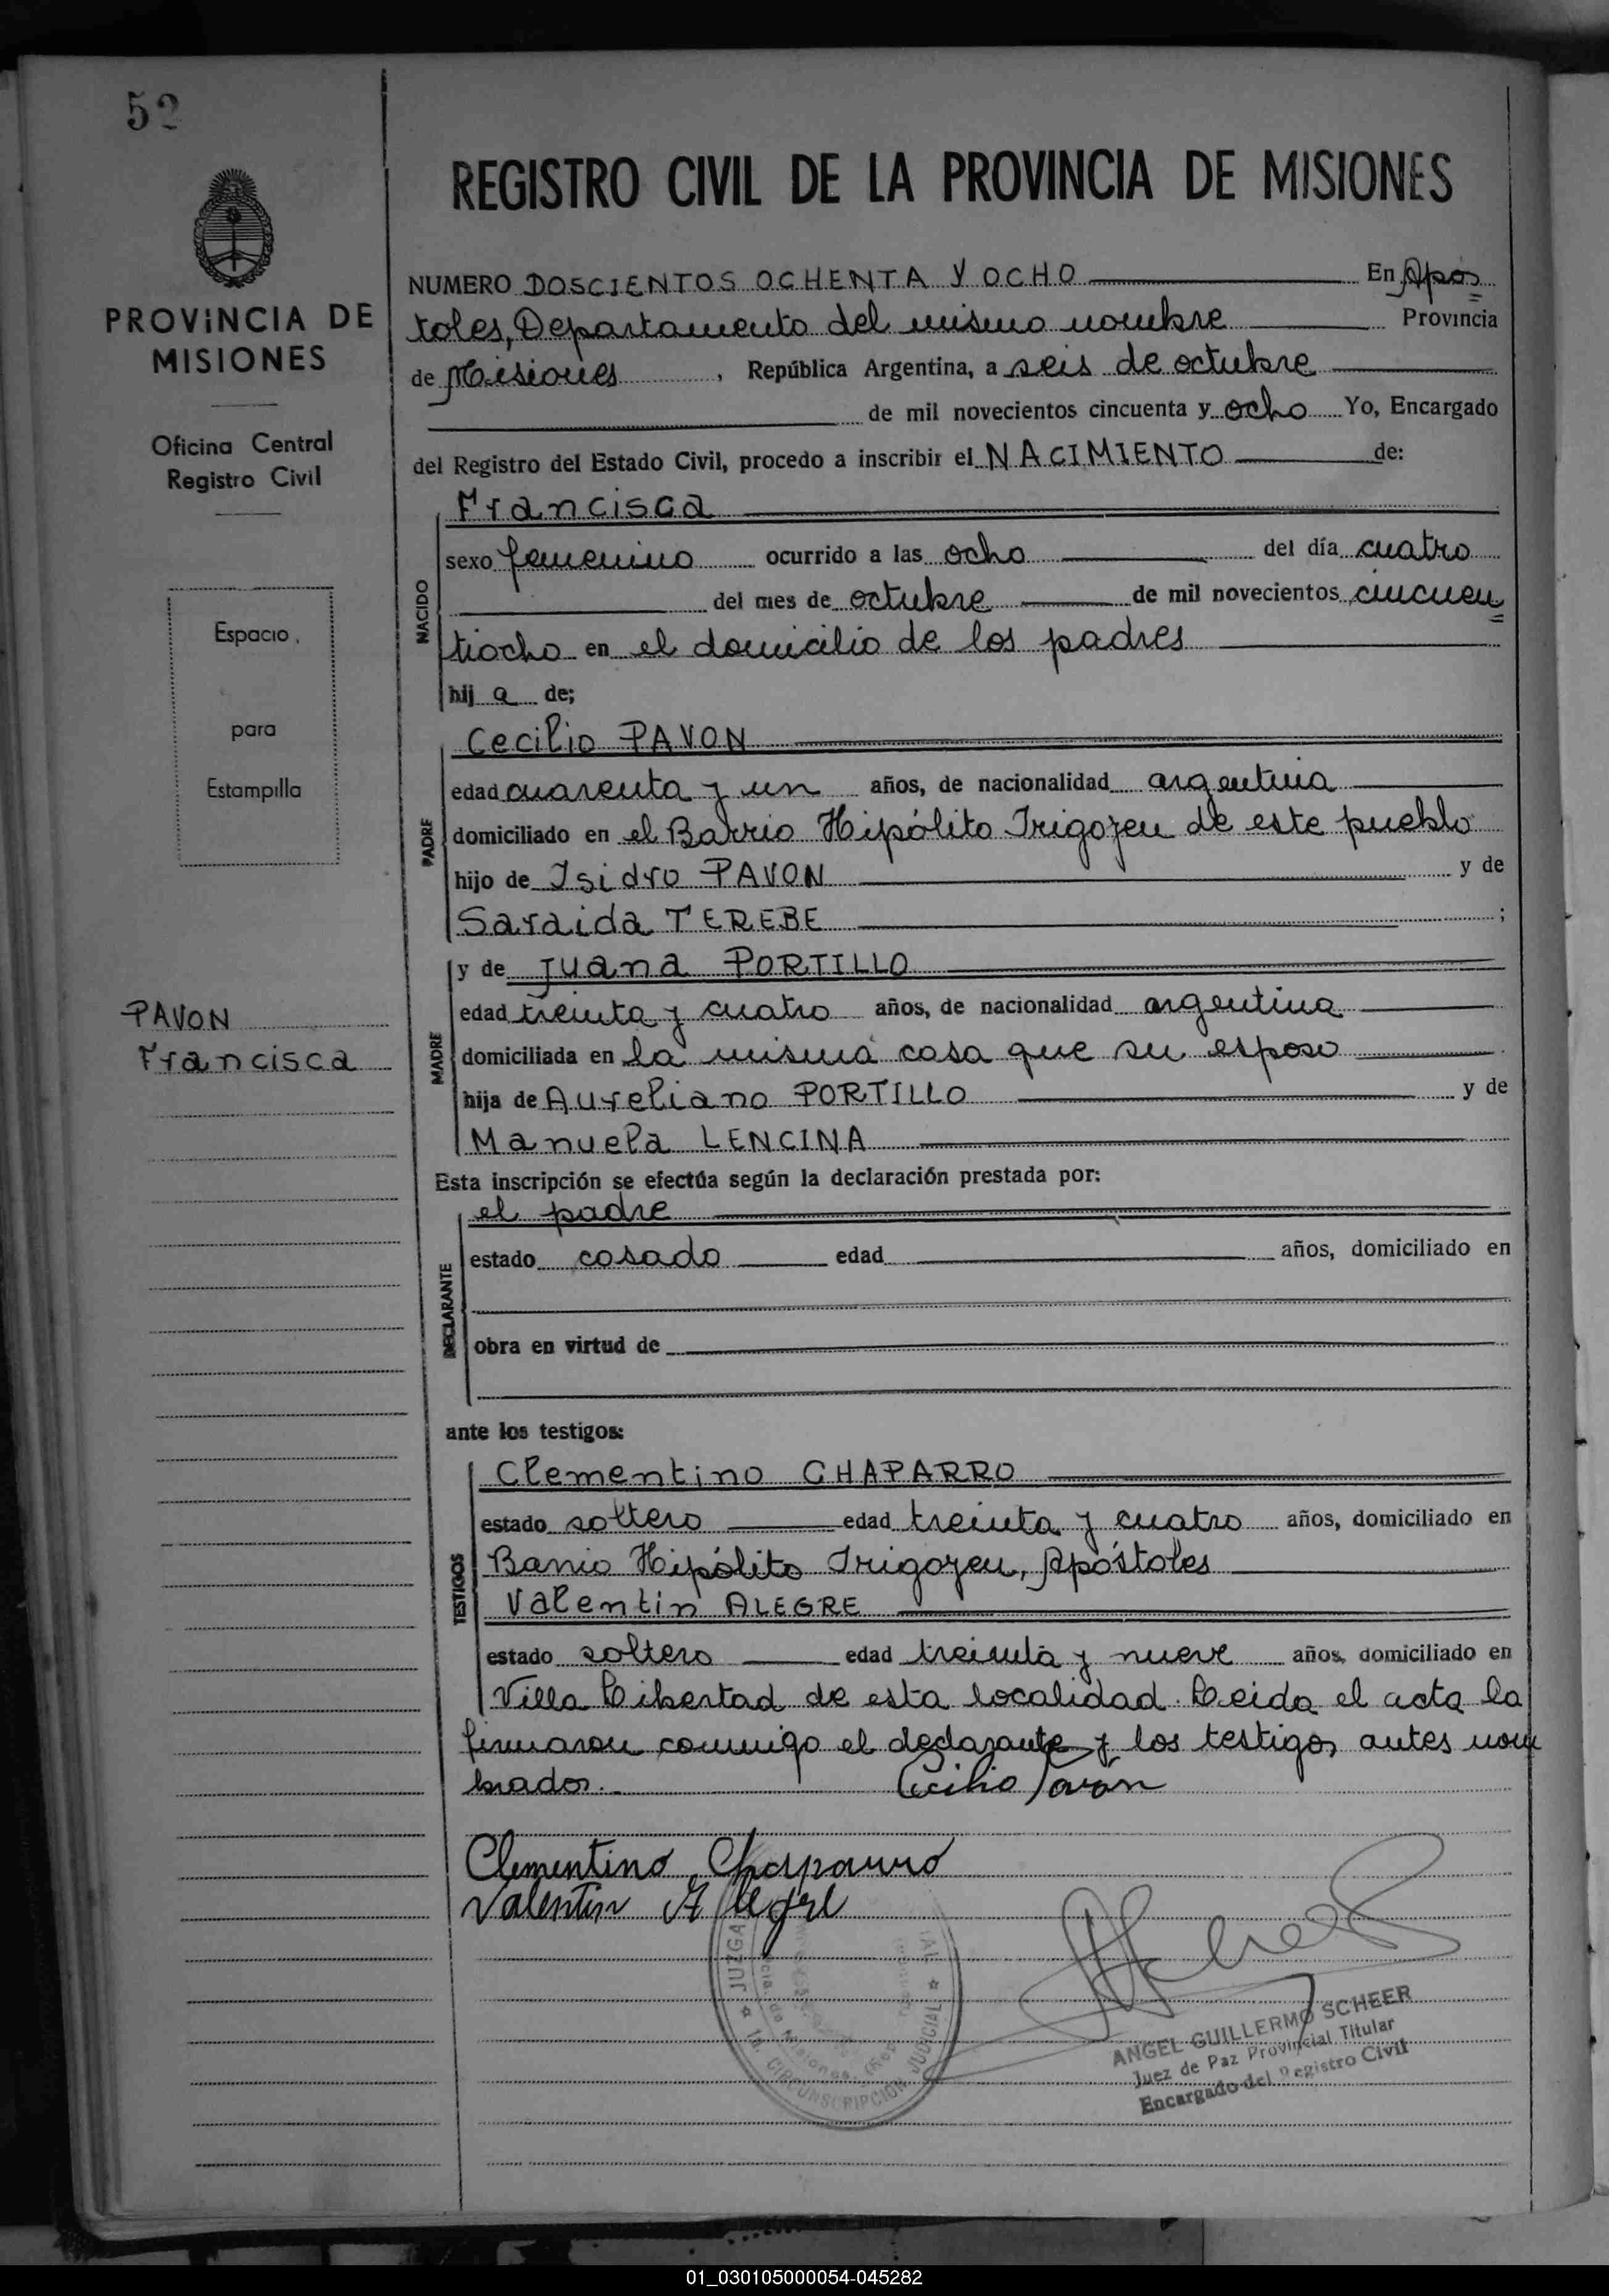 52
REGISTRO CIVIL DE LA PROVINCIA DE MISIONES
PROVINCIA DE
MISIONES
Oficina Central
Registro Civil
Espacio
para
Estampilla
PAVON
Francisca
NUMERO DOSCIENTOS OCHENTA Y OCHO En Após
toles, Departamento del mismo nombre Provincia
de Misiones, República Argentina, a seis de octubre
de mil novecientos cincuenta y ocho Yo, Encargado
del Registro del Estado Civil, procedo a inscribir el NACIMIENTO de:
NACIDO
Francisca
sexo femenino ocurrido a las ocho del día cuatro
del mes de octubre de mil novecientos cincuen
tiocho en el domicilio de los padres
hij a de;
PADRE
Cecilio PAVON
edad cuarenta y un años, de nacionalidad argentina
domiciliado en el Barrio Hipólito Irigoyen de este pueblo
hijo de Isidro PAVON y de
Saraida TEREBE ;
MADRE
y de Juana PORTILLO
edad treinta y cuatro años, de nacionalidad argentina
domiciliada en la misma casa que su esposo
hija de Aureliano PORTILLO y de
Manuela LENCINA
Esta inscripción se efectúa según la declaración prestada por:
DECLARANTE
el padre
estado casado edad años, domiciliado en
obra en virtud de
ante los testigos:
TESTIGOS
Clementino CHAPARRO
estado soltero edad treinta y cuatro años, domiciliado en
Barrio Hipólito Irigoyen, Apóstoles
Valentín ALEGRE
estado soltero edad treinta y nueve años, domiciliado en
Villa Libertad de esta localidad. Leida el acta la
firmaron conmigo el declarante y los testigos antes nom
brados.
Cecilio Pavón
Clementino Chaparro
Valentin Alegre
JUZGA
CIRCUNSCRIPCION JUDICIAL
ANGEL GUILLERMO SCHEER
Juez de Paz Provincial Titular
Encargado del Registro Civil
01_030105000054-045282